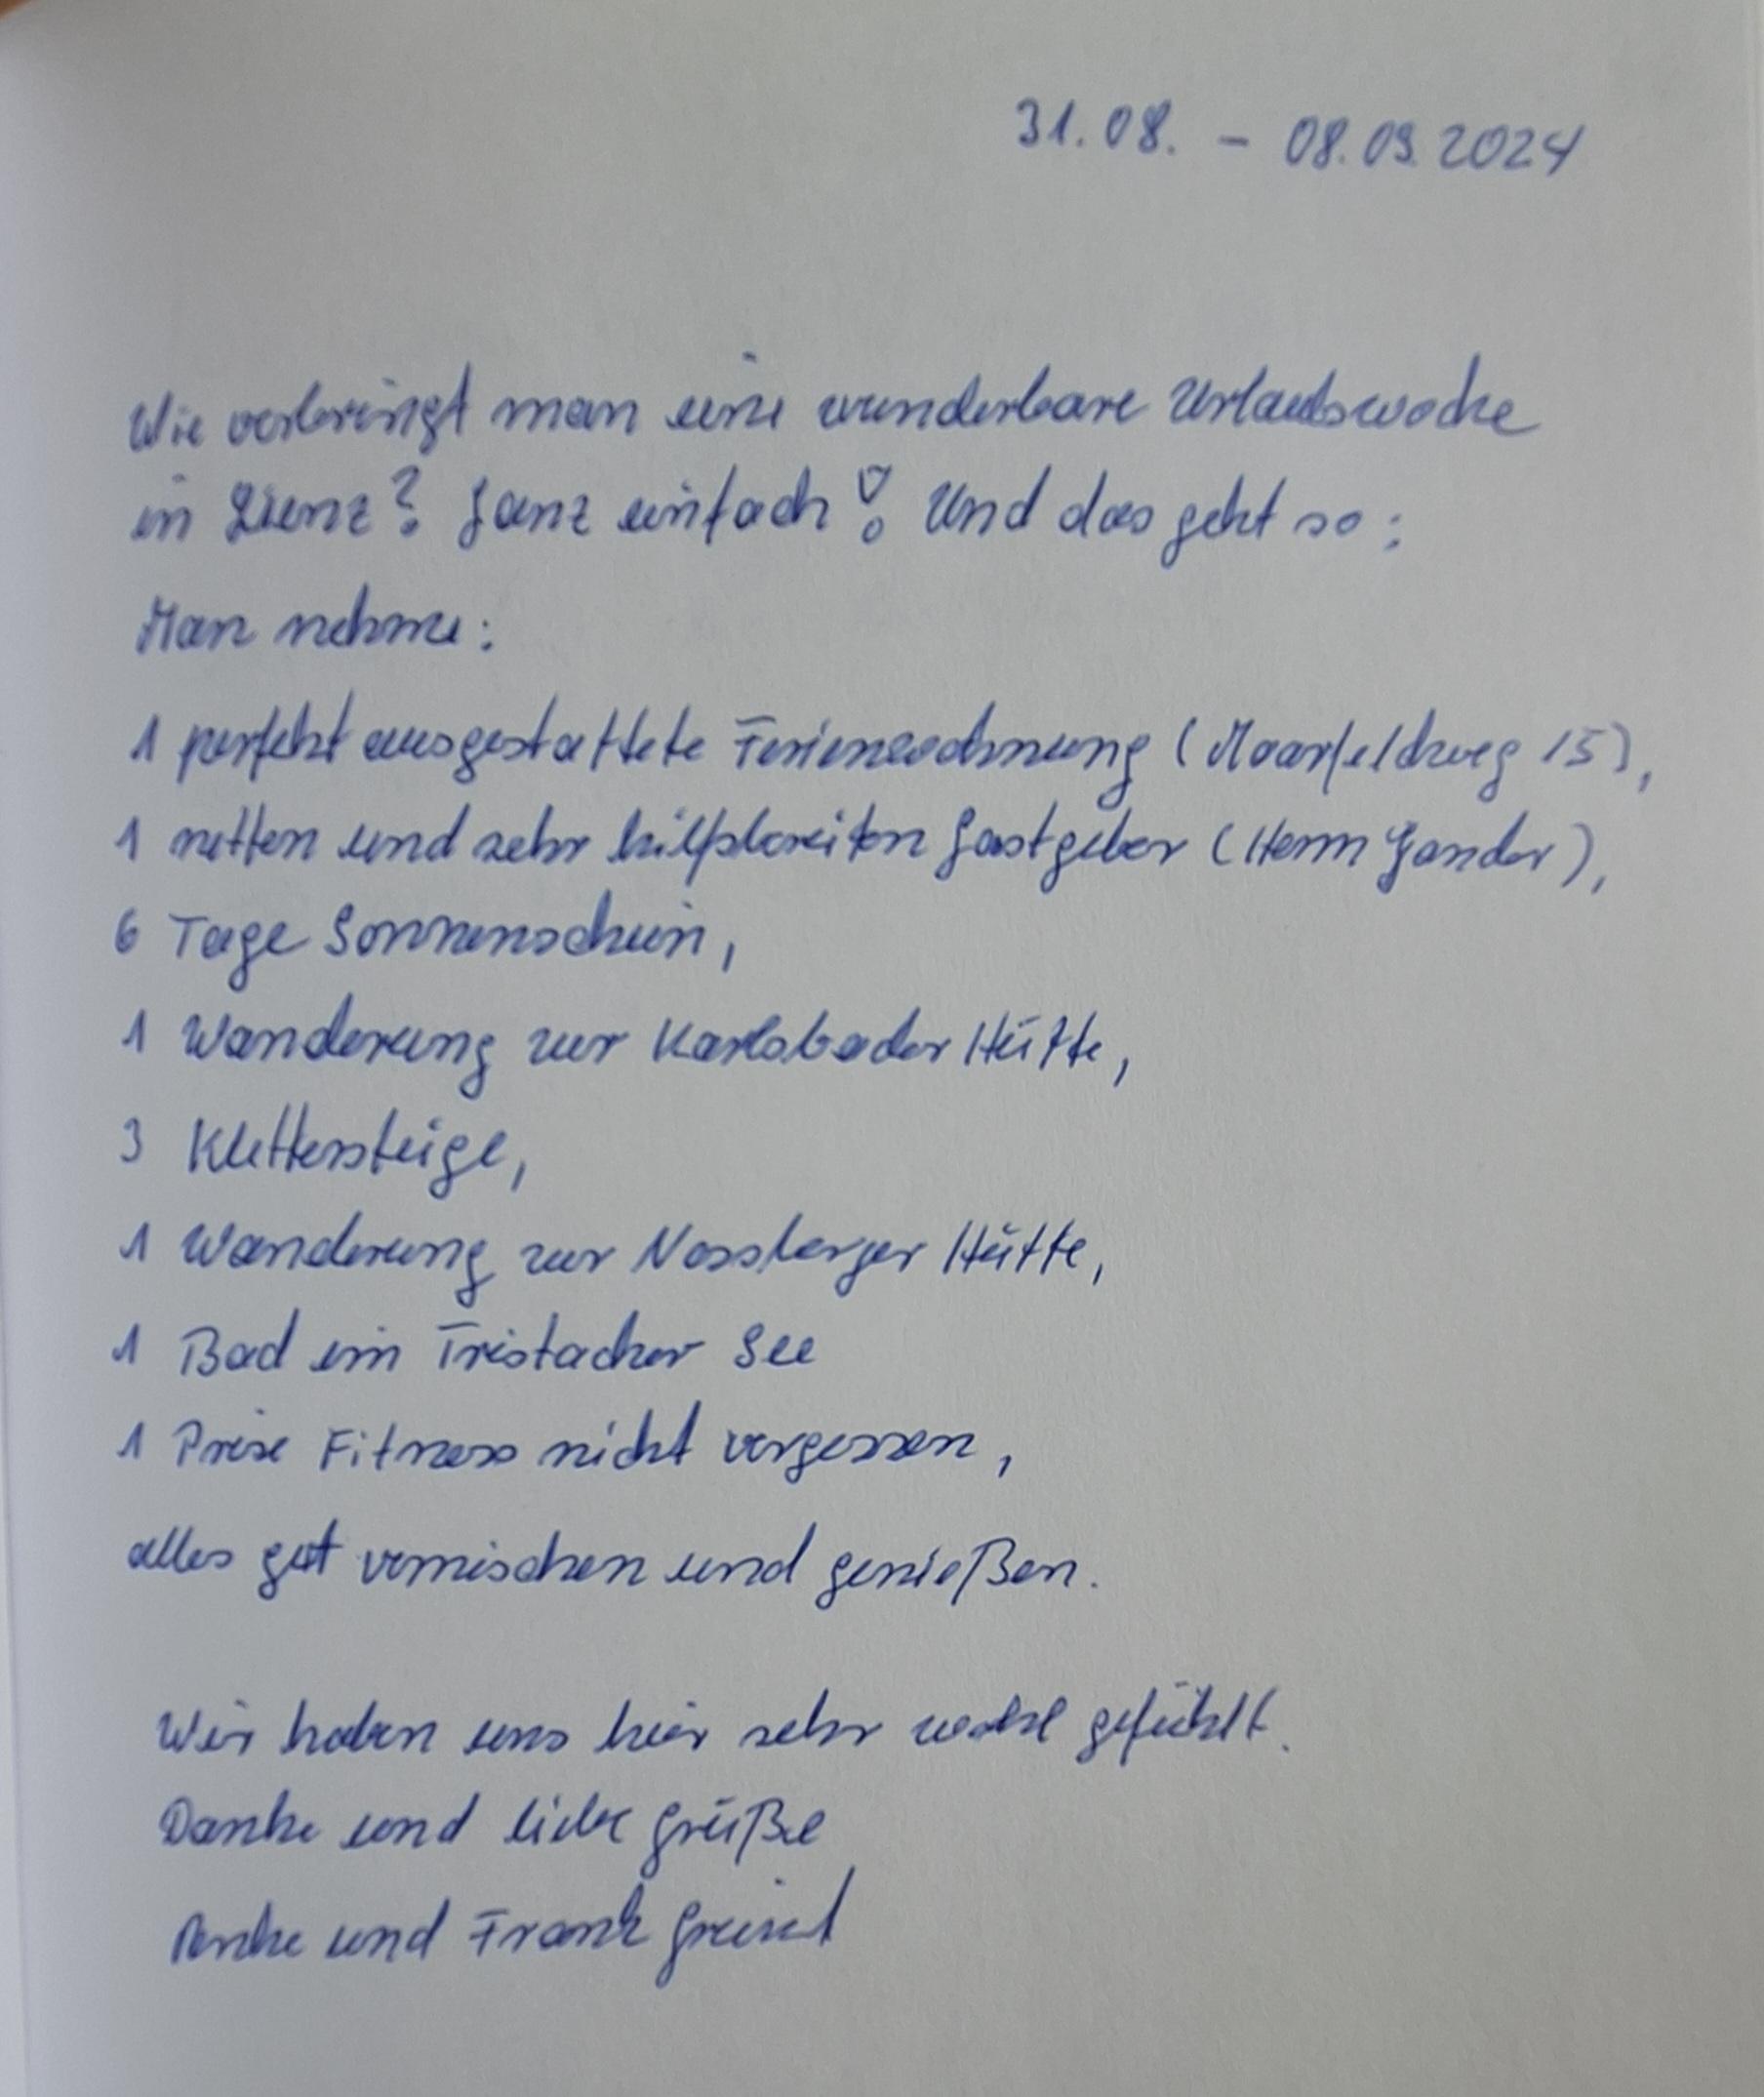 31.08. – 08.09.2024
Wie verbringt man eine wunderbare Urlaubswoche
in Lienz? Ganz einfach! Und das geht so:
Man nehme:
1 perfekt ausgestattete Ferienwohnung (Moarfeldweg 15),
1 netten und sehr hilfsbereiten Gastgeber (Herrn Gander),
6 Tage Sonnenschein,
1 Wanderung zur Karlsbader Hütte,
3 Klettersteige,
1 Wanderung zur Nossberger Hütte,
1 Bad im Tristacher See
1 Prise Fitness nicht vergessen,
alles gut vermischen und genießen.
Wir haben uns hier sehr wohl gefühlt.
Danke und liebe Grüße
Anke und Frank